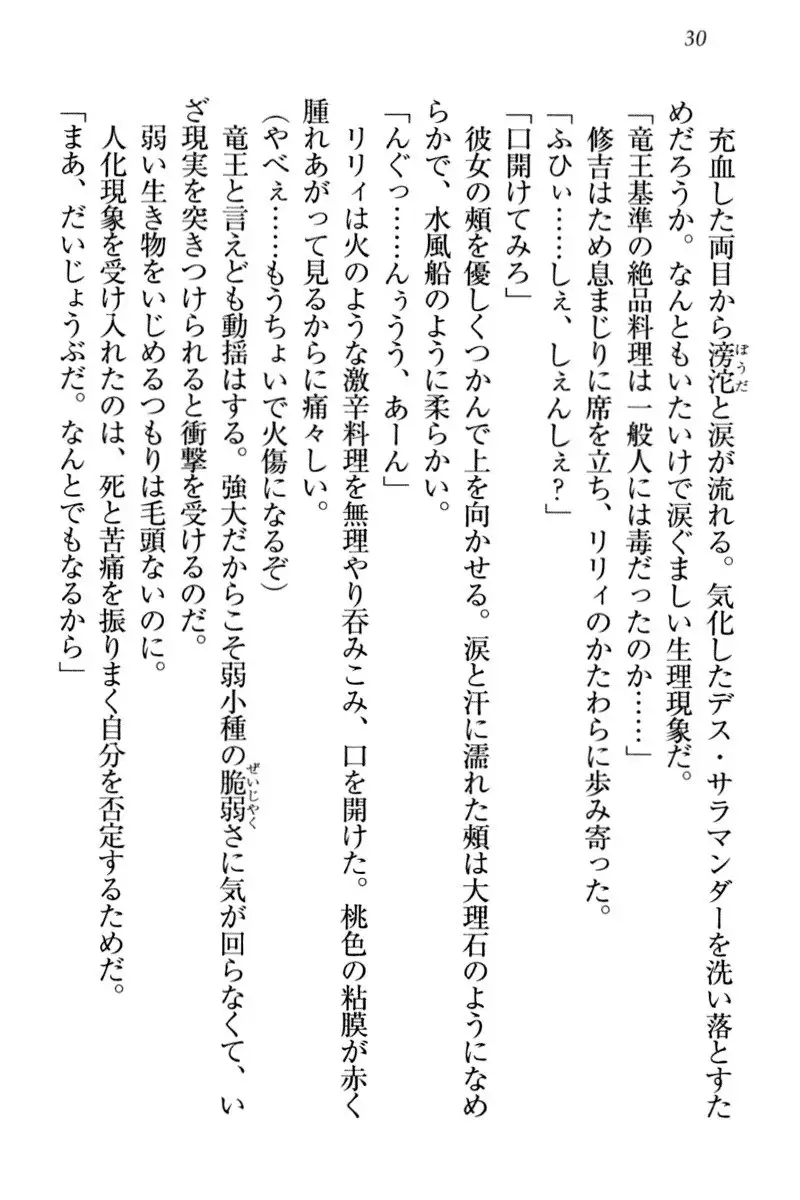 30
充血した両目から滂沱と涙が流れる。気化したデス・サラマンダーを洗い落とすた
ぼうだ
めだろうか。なんともいたいけで涙ぐましい生理現象だ。
「竜王基準の絶品料理は一般人には毒だったのか……」
修吉はため息まじりに席を立ち、リリィのかたわらに歩み寄った。
「ふひぃ……しぇ、しぇんしぇ？」
「口開けてみろ」
彼女の頰を優しくつかんで上を向かせる。涙と汗に濡れた頰は大理石のようになめ
らかで、水風船のように柔らかい。
「んぐっ……んぅうう、あーん」
リリィは火のような激辛料理を無理やり呑みこみ、口を開けた。桃色の粘膜が赤く
腫れあがって見るからに痛々しい。
（やべぇ……もうちょいで火傷になるぞ）
竜王と言えども動揺はする。強大だからこそ弱小種の脆弱さに気が回らなくて、い
ぜいじゃく
ざ現実を突きつけられると衝撃を受けるのだ。
弱い生き物をいじめるつもりは毛頭ないのに。
人化現象を受け入れたのは、死と苦痛を振りまく自分を否定するためだ。
「まあ、だいじょうぶだ。なんとでもなるから」